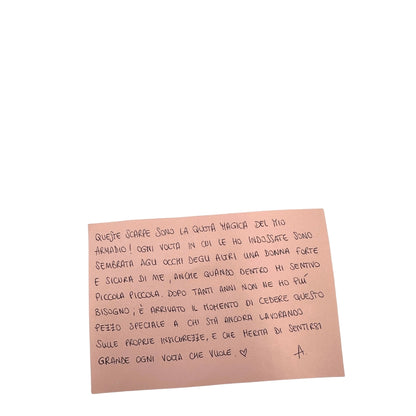 QUESTE SCARPE SONO LA QUOTA MAGICA DEL MIO
ARMADIO! OGNI VOLTA IN CUI LE HO INDOSSATE SONO
SEMBRATA AGLI OCCHI DEGLI ALTRI UNA DONNA FORTE
E SICURA DI ME, ANCHE QUANDO DENTRO MI SENTIVO
PICCOLA PICCOLA. DOPO TANTI ANNI NON NE HO PIÙ
BISOGNO, È ARRIVATO IL MOMENTO DI CEDERE QUESTO
PEZZO SPECIALE A CHI STA ANCORA LAVORANDO
SULLE PROPRIE INSICUREZZE, E CHE MERITA DI SENTIRSI
GRANDE OGNI VOLTA CHE VUOLE. ♡ A.